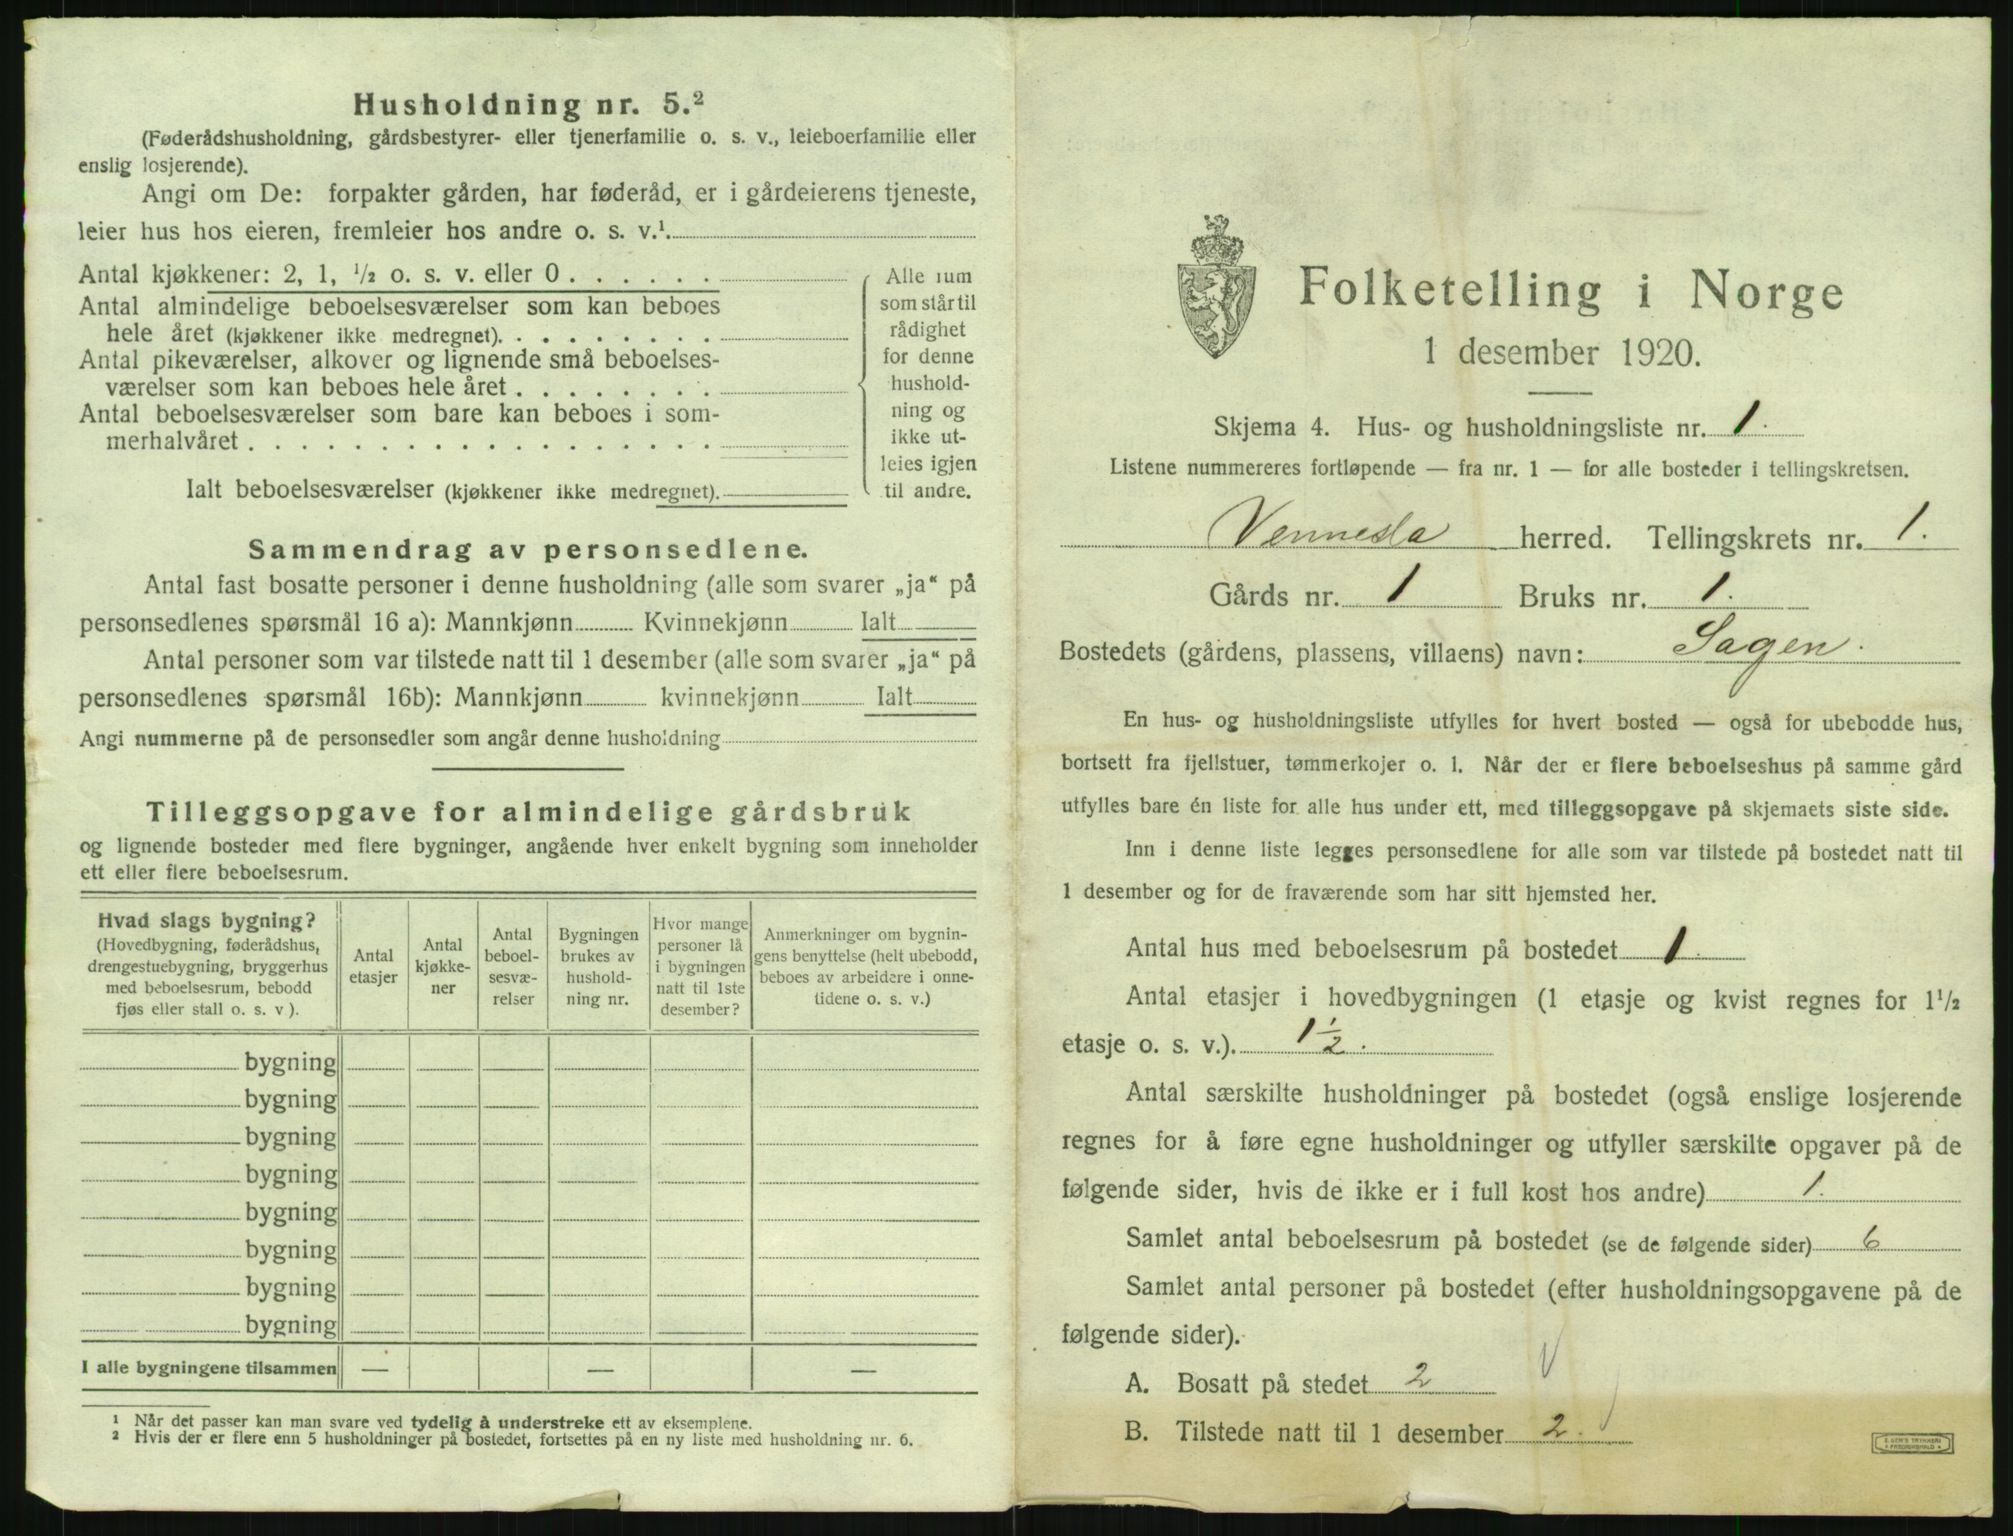 Husholdning nr. 5.²
(Føderådshusholdning, gårdsbestyrer- eller tjenerfamilie o. s. v., leieboerfamilie eller
enslig losjerende).
Angi om De: forpakter gården, har føderåd, er i gårdeierens tjeneste,
leier hus hos eieren, fremleier hos andre o. s. v.¹.
Antal kjøkkener: 2, 1, ½ o. s. v. eller 0 . . . . . .
Antal almindelige beboelsesværelser som kan beboes
hele året (kjøkkener ikke medregnet). . . . . . . . .
Antal pikeværelser, alkover og lignende små beboelses-
værelser som kan beboes hele året . . . . . . . .
Antal beboelsesværelser som bare kan beboes i som-
merhalvåret . . . . . . . . . . . . . . . . . .
Ialt beboelsesværelser (kjøkkener ikke medregnet).
Alle rum
som står til
rådighet
for denne
hushold-
ning og
ikke ut-
leies igjen
til andre.
Sammendrag av personsedlene.
Antal fast bosatte personer i denne husholdning (alle som svarer „ja“ på
personsedlenes spørsmål 16 a): Mannkjønn Kvinnekjønn Ialt
Antal personer som var tilstede natt til 1 desember (alle som svarer „ja“ på
personsedlenes spørsmål 16b): Mannkjønn kvinnekjønn Ialt
Angi nummerne på de personsedler som angår denne husholdning
Tilleggsopgave for almindelige gårdsbruk
og lignende bosteder med flere bygninger, angående hver enkelt bygning som inneholder
ett eller flere beboelsesrum.
Hvad slags bygning?
(Hovedbygning, føderådshus,
drengestuebygning, bryggerhus
med beboelsesrum, bebodd
fjøs eller stall o. s. v ).
Antal
etasjer
Antal
kjøkke-
ner
Antal
beboel-
sesvæ-
relser
Bygningen
brukes av
hushold-
ning nr.
Hvor mange
personer lå
i bygningen
natt til 1ste
desember?
Anmerkninger om bygnin-
gens benyttelse (helt ubebodd,
beboes av arbeidere i onne-
tidene o. s. v.)
bygning
bygning
bygning
bygning
bygning
bygning
bygning
bygning
I alle bygningene tilsammen — — —
¹ Når det passer kan man svare ved tydelig å understreke ett av eksemplene.
² Hvis der er flere enn 5 husholdninger på bostedet, fortsettes på en ny liste med husholdning nr. 6.
Folketelling i Norge
1 desember 1920.
Skjema 4. Hus- og husholdningsliste nr. 1.
Listene nummereres fortløpende — fra nr. 1 — for alle bosteder i tellingskretsen.
Vennesla herred. Tellingskrets nr. 1.
Gårds nr. 1 Bruks nr. 1.
Bostedets (gårdens, plassens, villaens) navn: Sagen.
En hus- og husholdningsliste utfylles for hvert bosted — også for ubebodde hus,
bortsett fra fjellstuer, tømmerkojer o. l. Når der er flere beboelseshus på samme gård
utfylles bare én liste for alle hus under ett, med tilleggsopgave på skjemaets siste side.
Inn i denne liste legges personsedlene for alle som var tilstede på bostedet natt til
1 desember og for de fraværende som har sitt hjemsted her.
Antal hus med beboelsesrum på bostedet 1.
Antal etasjer i hovedbygningen (1 etasje og kvist regnes for 1½
etasje o. s. v.). 1½.
Antal særskilte husholdninger på bostedet (også enslige losjerende
regnes for å føre egne husholdninger og utfyller særskilte opgaver på de
følgende sider, hvis de ikke er i full kost hos andre) 1.
Samlet antal beboelsesrum på bostedet (se de følgende sider) 6
Samlet antal personer på bostedet (efter husholdningsopgavene på de
følgende sider).
A. Bosatt på stedet 2
B. Tilstede natt til 1 desember 2.